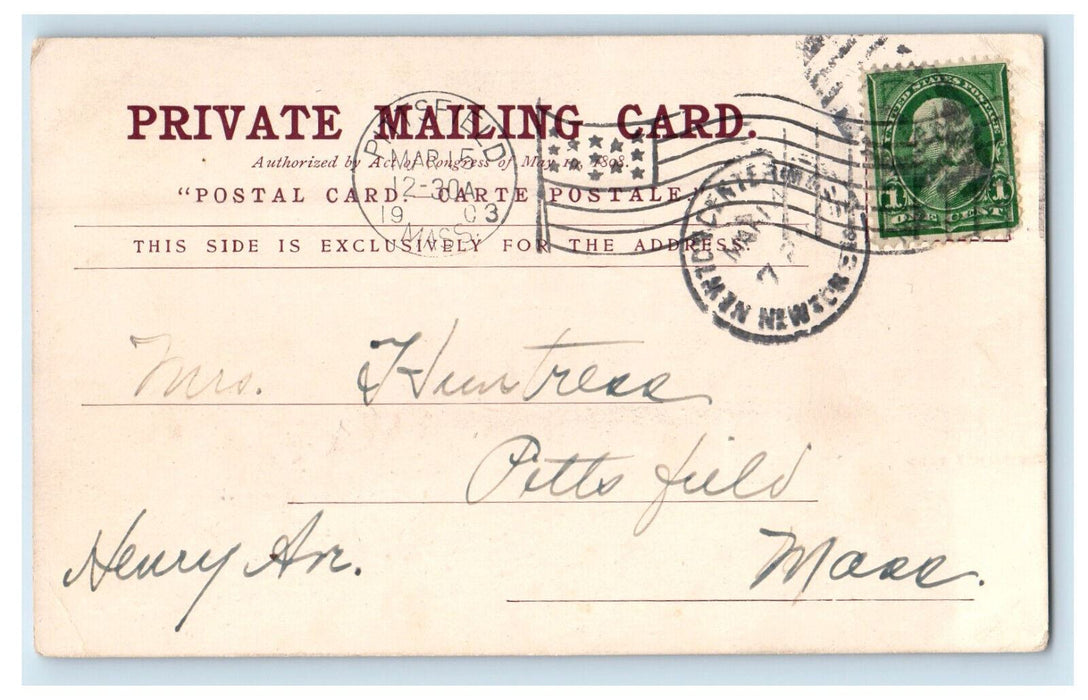 PRIVATE MAILING CARD.
Authorized by Act of Congress of May 19, 1898.
"POSTAL CARD. CARTE POSTALE."
THIS SIDE IS EXCLUSIVELY FOR THE ADDRESS.
PITTSFIELD
MAR 15
12-30A
19 03
MASS.
NEWTON CENTER
MAR
UNITED STATES POSTAGE
1 1
ONE CENT
Mrs. Huntress
Pittsfield
Henry Ave. Mass.